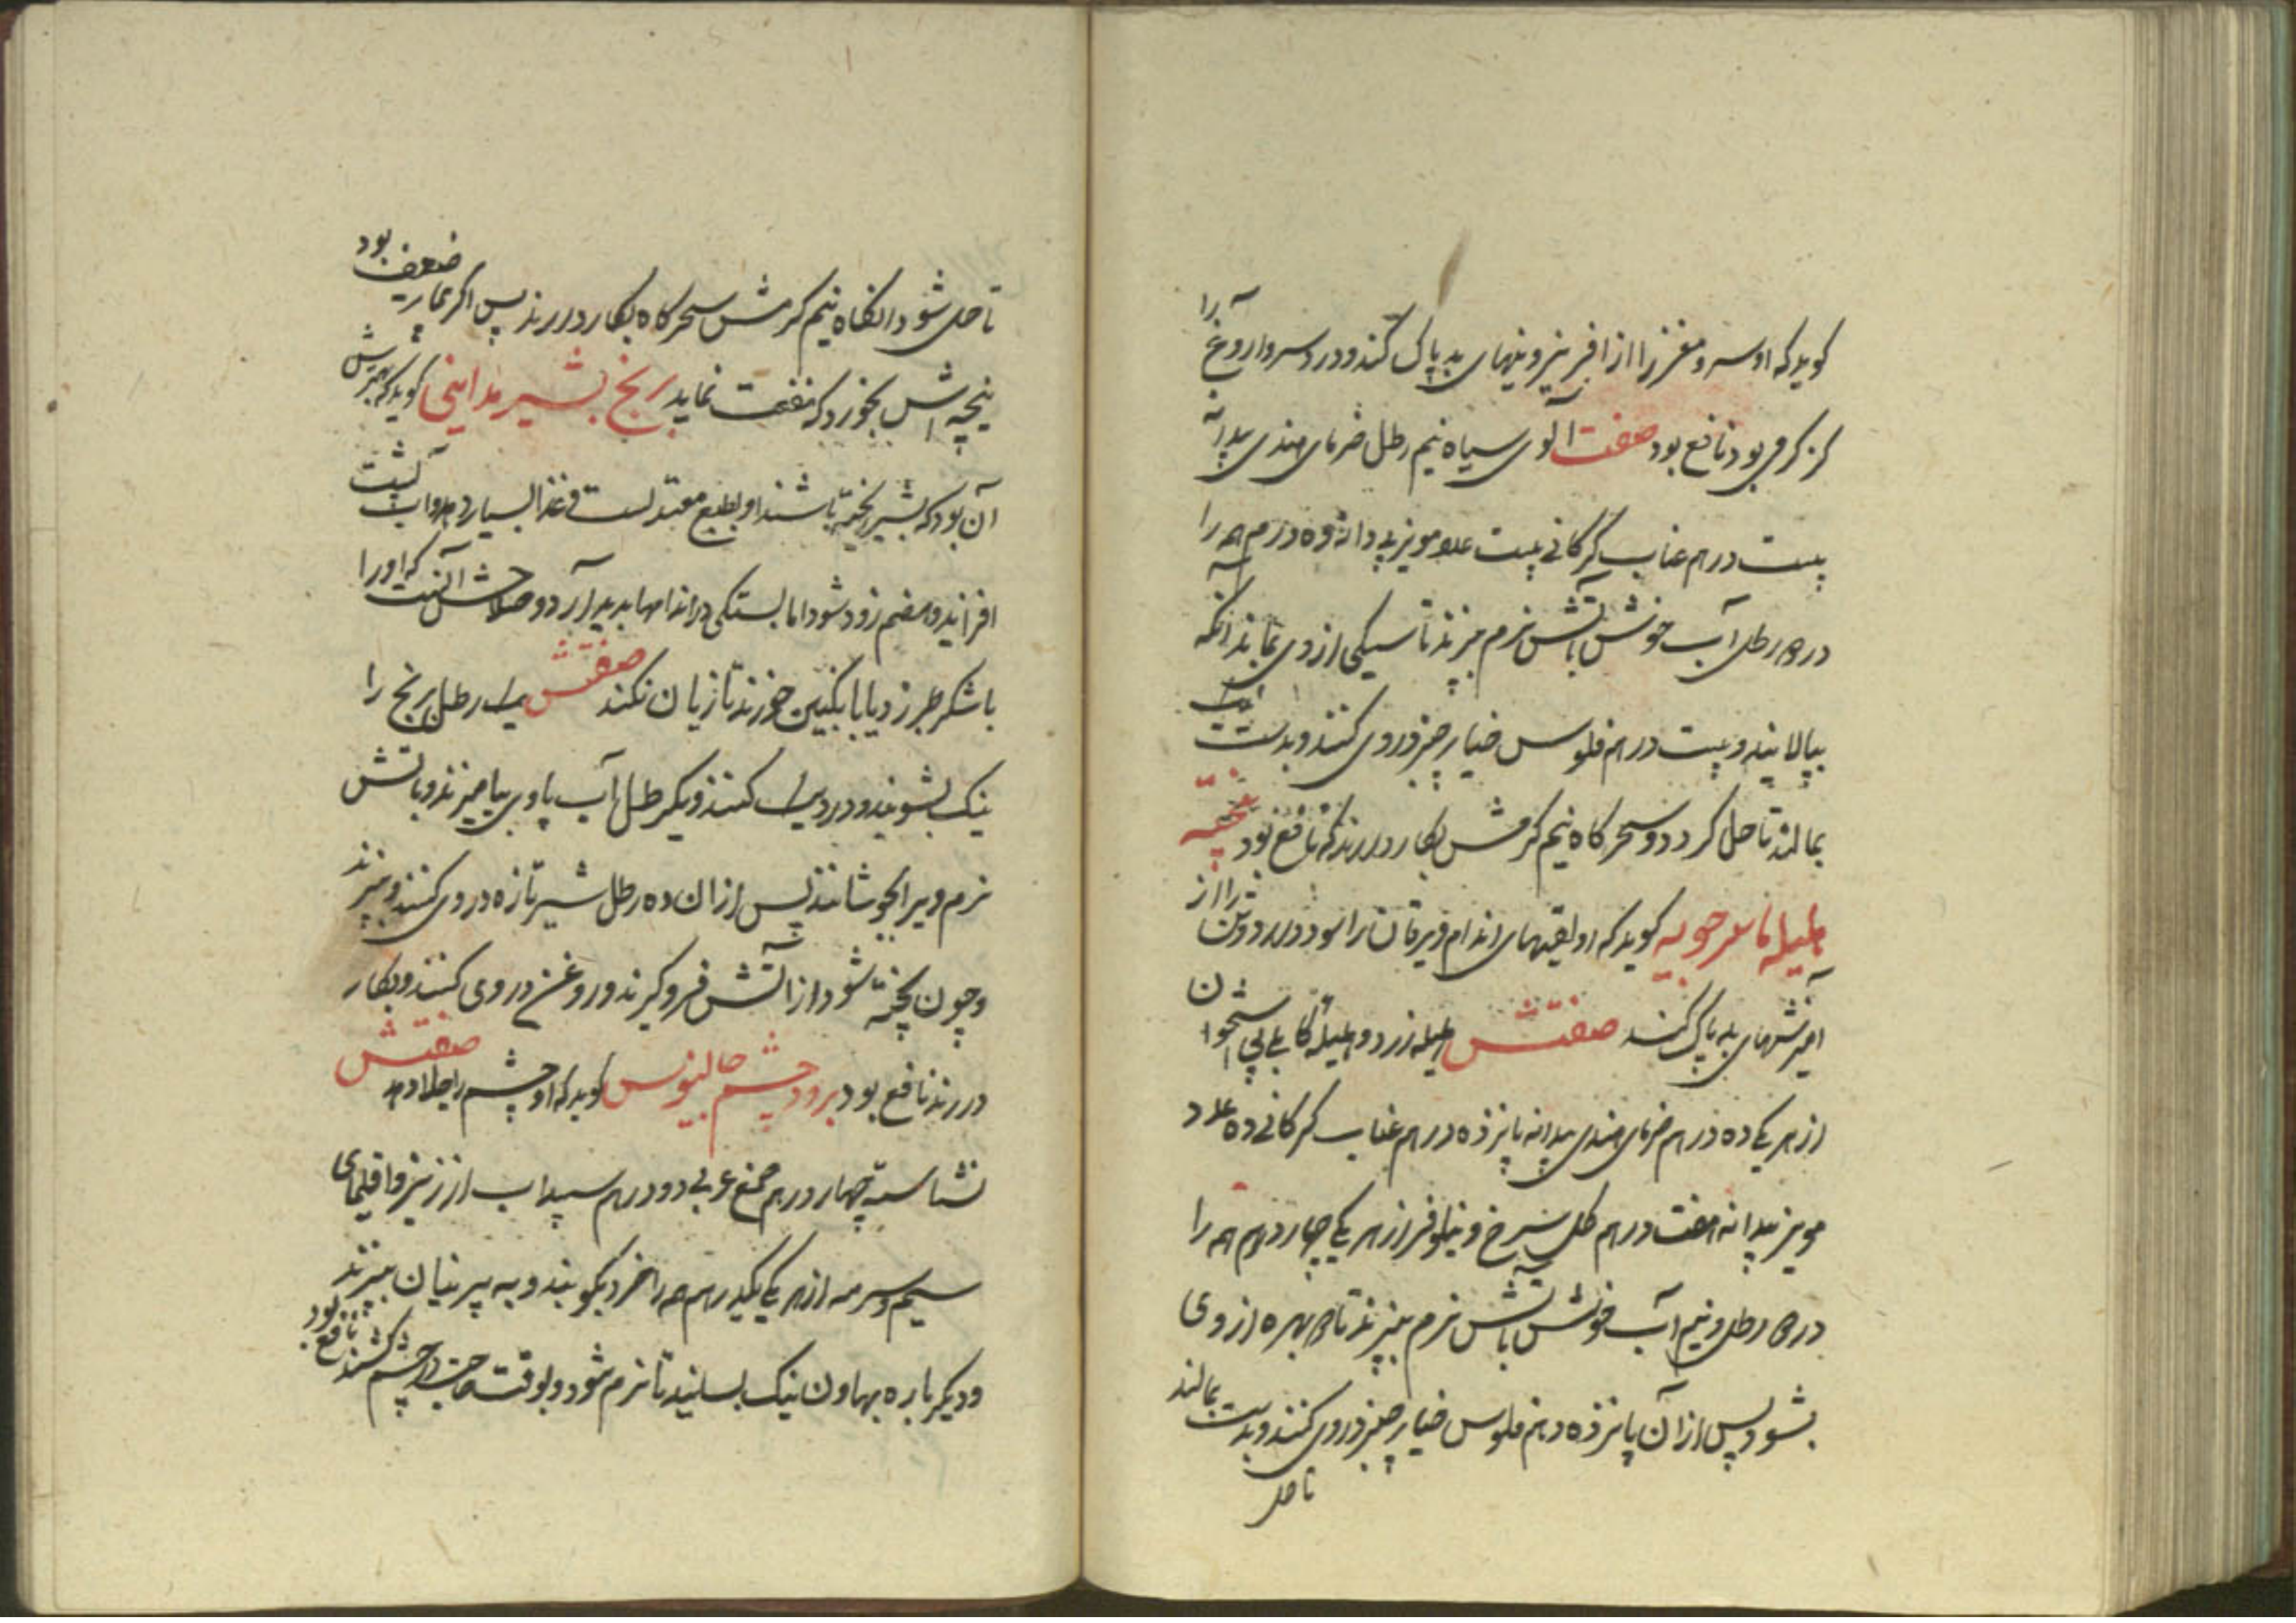 کوید که او سر و مغز را از افزیز و نیهای بد پاک کند و درد سر و اروغ را
کز کرمی بود نافع بود صفت آلوی سیاه نیم رطل خرمای هندی بیدانه
بیست درهم عناب کرکانی بیست عدد مویز بیدانه ده درم همه را
در رطل آب خوش باتش نرم بپزند تا سیکی از وی بماند انکه
بپالایند و بیست درهم فلوس خیار چنبر در وی کنند و بدست
بمالند تا حل کردد و سحرکاه نیم کرمش بکار دررند که نافع بود پخته
هلیله ماسرجویه کوید که او را از
امیزشهای بد پاک کند صفتش هلیله زرد و هلیله کابلی بی استخوان
از هر یکی ده درهم خرمای هندی بیدانه پانزده درهم عناب کرکانی ده عدد
مویز بیدانه هفت درهم کل سرخ و نیلوفر از هر یکی چهار درهم همه را
در رطل و نیم آب خوش باتش نرم بپزند تا بهره از وی
بشود پس از آن پانزده درهم فلوس خیار چنبر در وی کنند و بدست بمالند
تا حل
تا حل شود انکاه نیم کرمش سحرکاه بکار دررند پس اکر بیمار ضعیف بود
پنجه اش بخورد که منفعت نماید برنج بشیر مداینی کوید که بهترش
آن بود که بشیر پخته باشند او بطبع معتدلست و غذا بسیار دهد و آب پشت
افزاید و هضم زود شود اما بستکی در اندامها پدید آرد و صلاحش آنست که او را
با شکر طبرزد یا با انکبین خورند تا زیان نکند صفتش یک رطل برنج را
نیک بشویند و در دیک کنند و یکرطل آب با وی بیامیزند و باتش
نرم ویرا بجوشانند پس از ان ده رطل شیر تازه در وی کنند و بپزند
و چون پخته شود از آتش فرو کیرند و روغن در وی کنند و بکار
دررند نافع بود برود چشم جالینوس کوید که او چشم را جلا دهد صفتش
نشاسته چهار درهم صمغ عربی دو درهم سپیداب ارزیز و اقلیمای
سیم و سرمه از هر یکی یکدرهم همه را خرد بکوبند و به پرنیان ببیزند
و دیکر باره بهاون نیک بسایند تا نرم شود و بوقت حاجت در چشم کشند نافع بود